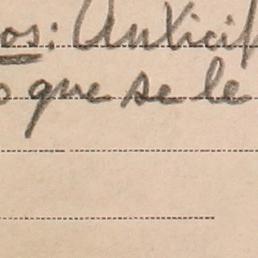 os: Auxicip
o que se le